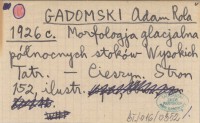 GADOMSKI Adam Rola
1926 c. Morfologja glacjalna
północnych stoków Wysokich
Tatr. — Cieszyn. Stron
152, ilustr.